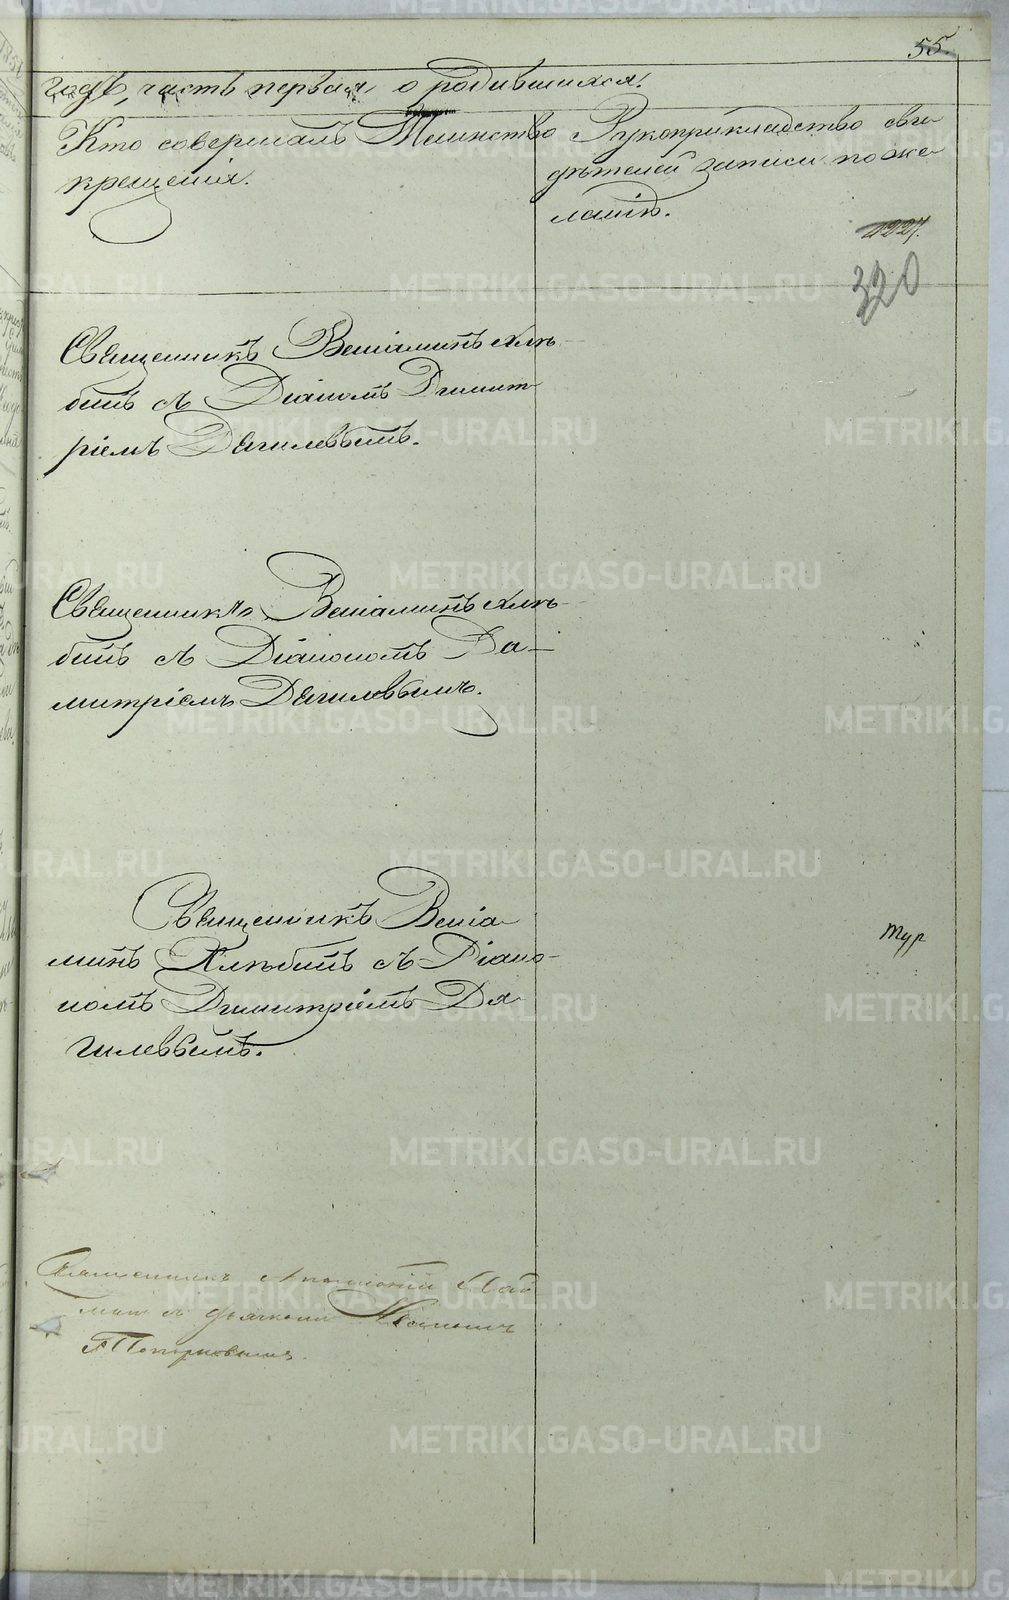 55.
годъ, часть первая, о родившихся.
Кто совершалъ Таинство
крещенія.
Рукоприкладство сви-
дѣтелей записи по же-
ланію.
1227.
320
Священникъ Веніаминъ Хлѣ-
бинъ съ Діакономъ Димит-
ріемъ Дягилевымъ.
Священникъ Веніаминъ Хлѣ-
бинъ съ Діакономъ Ди-
митріемъ Дягилевымъ.
Священникъ Веніа-
минъ Хлѣбинъ съ Діако-
номъ Димитріемъ Дя-
гилевымъ.
тур
Священникъ
съ дьячкомъ
METRIKI.GASO-URAL.RU